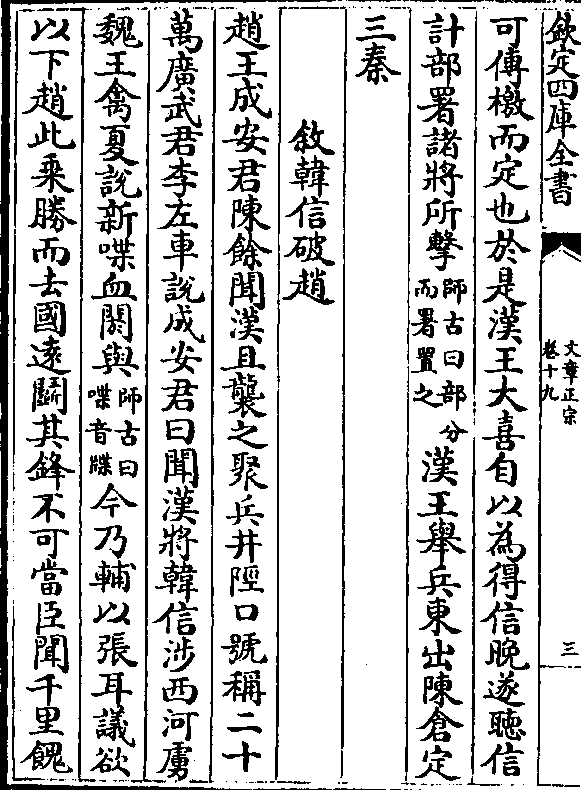 欽定四庫全書
文章正宗
卷十九
三
可傳檄而定也於是漢王大喜自以為得信晚遂聽信
計部署諸將所擊師古曰部分而署置之漢王舉兵東出陳倉定
三秦
敘韓信破趙
趙王成安君陳餘聞漢且襲之聚兵井陘口號稱二十
萬廣武君李左車說成安君曰聞漢將韓信涉西河虜
魏王禽夏說新喋血閼與師古曰喋音牒今乃輔以張耳議欲
以下趙此乘勝而去國遠鬭其鋒不可當臣聞千里餽